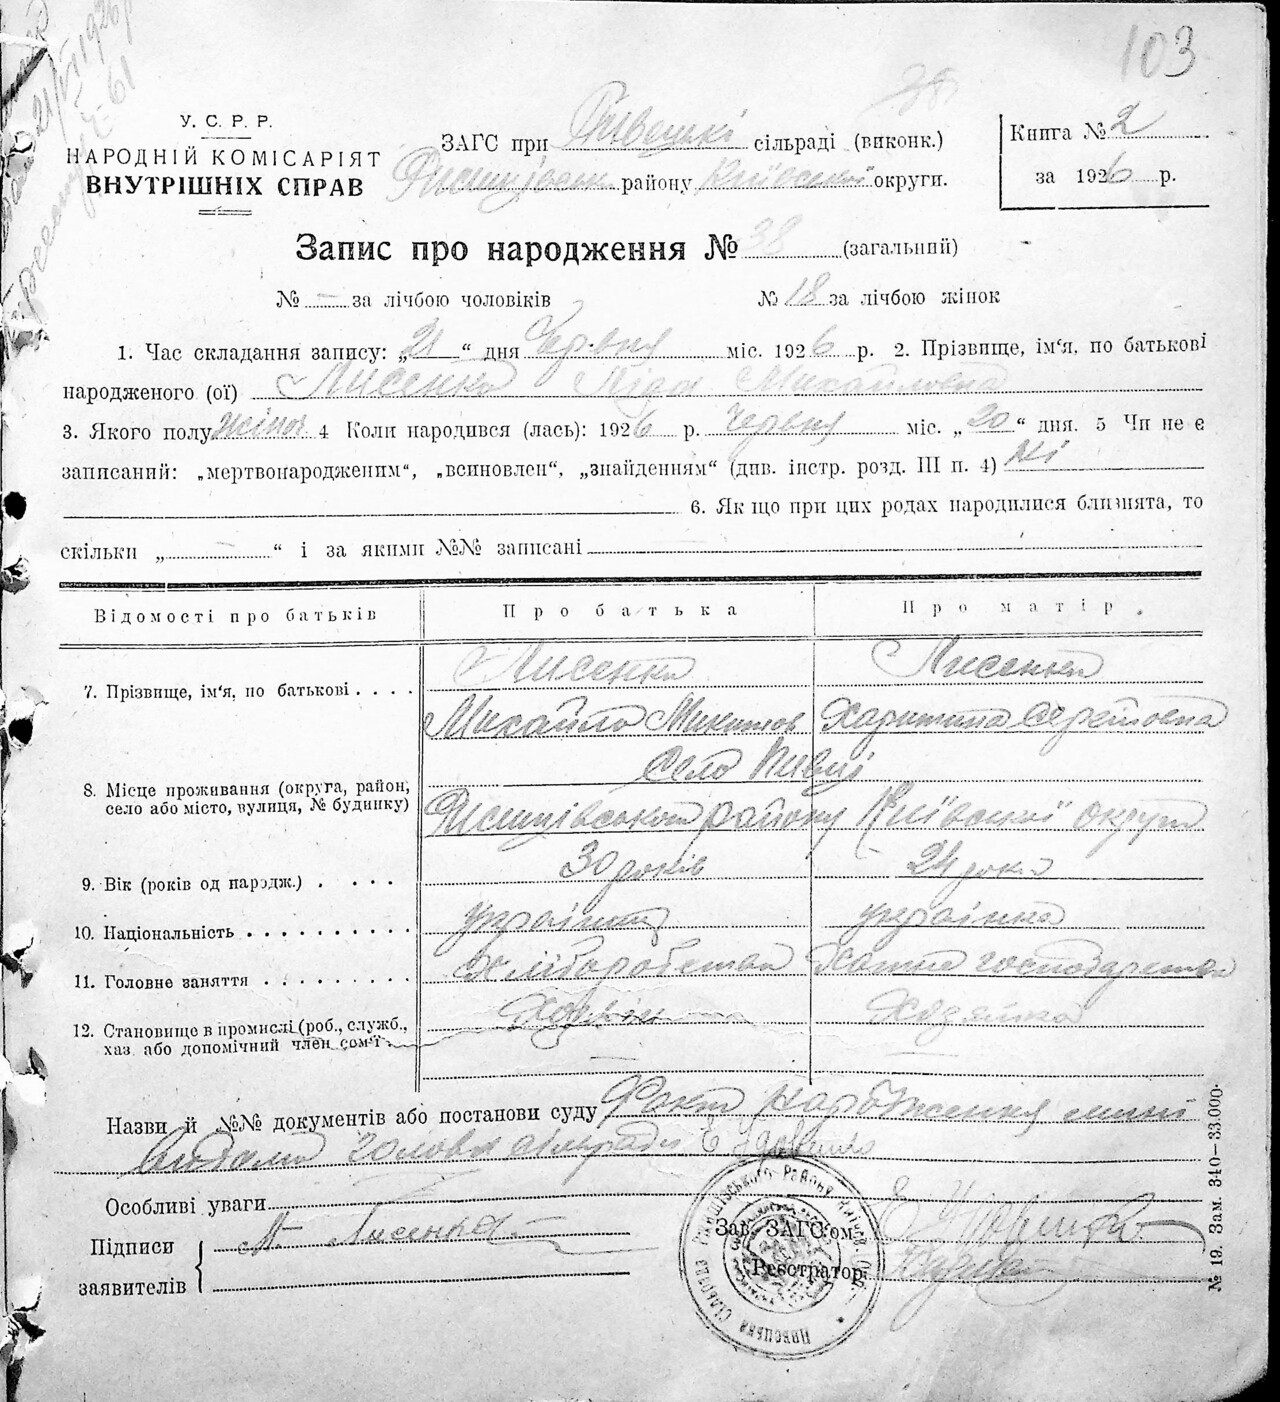 103
У. С. Р. Р.
НАРОДНІЙ КОМІСАРІЯТ
ВНУТРІШНІХ СПРАВ
ЗАГС при Пивецькі сільраді (виконк.)
району Київської округи.
Книга № 2
за 1926 р.
Запис про народження № 38 (загальний)
№ – за лічбою чоловіків № 18 за лічбою жінок
1. Час складання запису: „21“ дня Червня міс. 1926 р. 2. Прізвище, ім'я, по батькові
народженого (ої) Лисенко Ліда Михайловна
3. Якого полу жіноч 4 Коли народився (лась): 1926 р. Червня міс. „20“ дня. 5 Чи не є
записаний: „мертвонародженим“, „всиновлен“, „знайденням“ (див. інстр. розд. III п. 4) Ні
6. Як що при цих родах народилися близнята, то
скільки „ – “ і за якими №№ записані
Відомості про батьків Про батька Про матір
7. Прізвище, ім'я, по батькові . . . . Лисенко Лисенко
Михайло Микитов Харитина Сергіовна
8. Місце проживання (округа, район, село або місто, вулиця, № будинку) Село Пивці
району Київської округи
9. Вік (років од народж.) . . . . 30 років 24 роки
10. Національність . . . . . . . . . . українець українка
11. Головне заняття . . . . . . . . . Хліборобство Хатнє господарство
12. Становище в промислі (роб., служб., Хазяїн Хазяйка
хаз. або допомічний член сом'ї .
Назви й №№ документів або постанови суду Факт народження
голова сільради Є
Особливі уваги
Підписи
заявителів
М. Лисенко
Зав. ЗАГС'ом
Реєстратор
№ 19. Зам. 340–33.000.